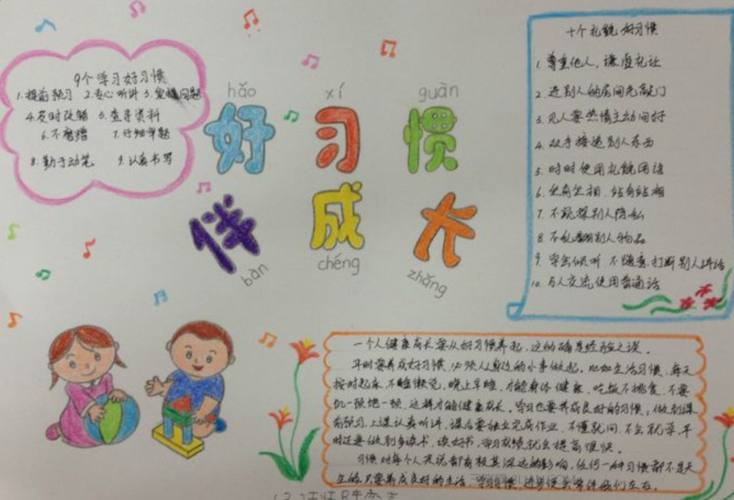 9个学习好习惯
1.提前预习 2.专心听讲 3.定措问题
4.及时改错 5.查寻资料
6.不磨蹭 7.仔细审题
8.勤于动笔 9.认真书写
hǎo xí guàn
好习惯
伴成长
bàn chéng zhǎng
十个礼貌好习惯
1.尊重他人,谦虚礼让
2.进别人的房间先敲门
3.见人要热情主动问好
4.双手接递别人东西
5.时时使用礼貌用语
6.坐有坐相.站有站相
7.不窥探别人隐私
8.不乱翻别人物品
9.学会倾听 不随意打断别人讲话
10.与人交流使用普通话
一个人健康成长要从好习惯养起,这的确是经验之谈。
平时要养成好习惯,必须从身边的小事做起。比如生活习惯,每天
按时起床,不睡懒觉,晚上早睡,才能身体健康。吃饭不挑食,不要
饥一顿饱一顿,这样才能健康成长。学习也要养成良好的习惯,做到课
前预习,上课认真听讲,课后要独立完成作业,不懂就问,不会就学。平
时还要做到多读书,读好书,学习成绩就会提高很快。
习惯对每个人来说都有极其深远的影响,任何一种习惯都不是天
生的,只要养成良好的生活、学习习惯,进步便会伴随我们左右。